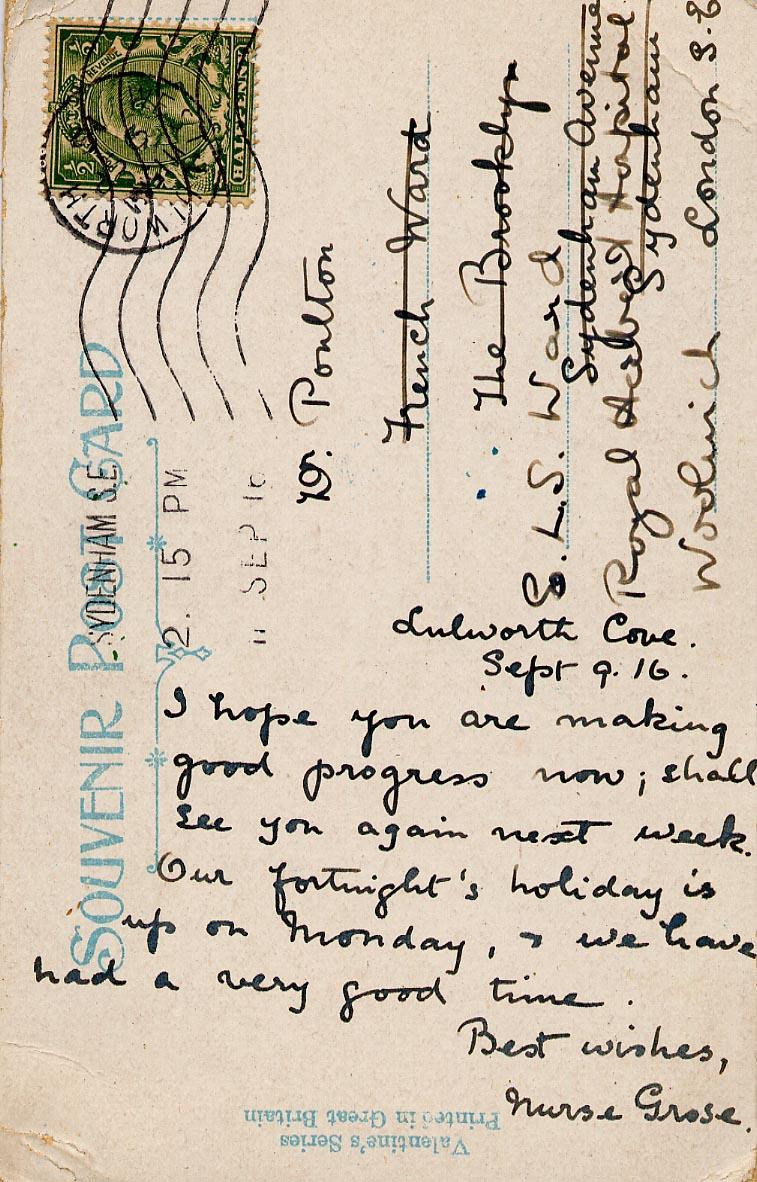 SOUVENIR POST CARD
SYDENHAM S.E.
2. 15 PM
11 SEP 16
HALFPENNY
REVENUE
Dr. Poulton
French Ward
The Brooklyn
S. L. S. Ward
Sydenham Avenue
Royal Hospital
Sydenham
Woolwich London S.E
Lulworth Cove.
Sept 9. 16.
I hope you are making
good progress now; shall
see you again next week.
Our fortnight's holiday is
up on Monday, & we have
had a very good time.
Best wishes,
Nurse Grose.
Valentine's Series
Printed in Great Britain